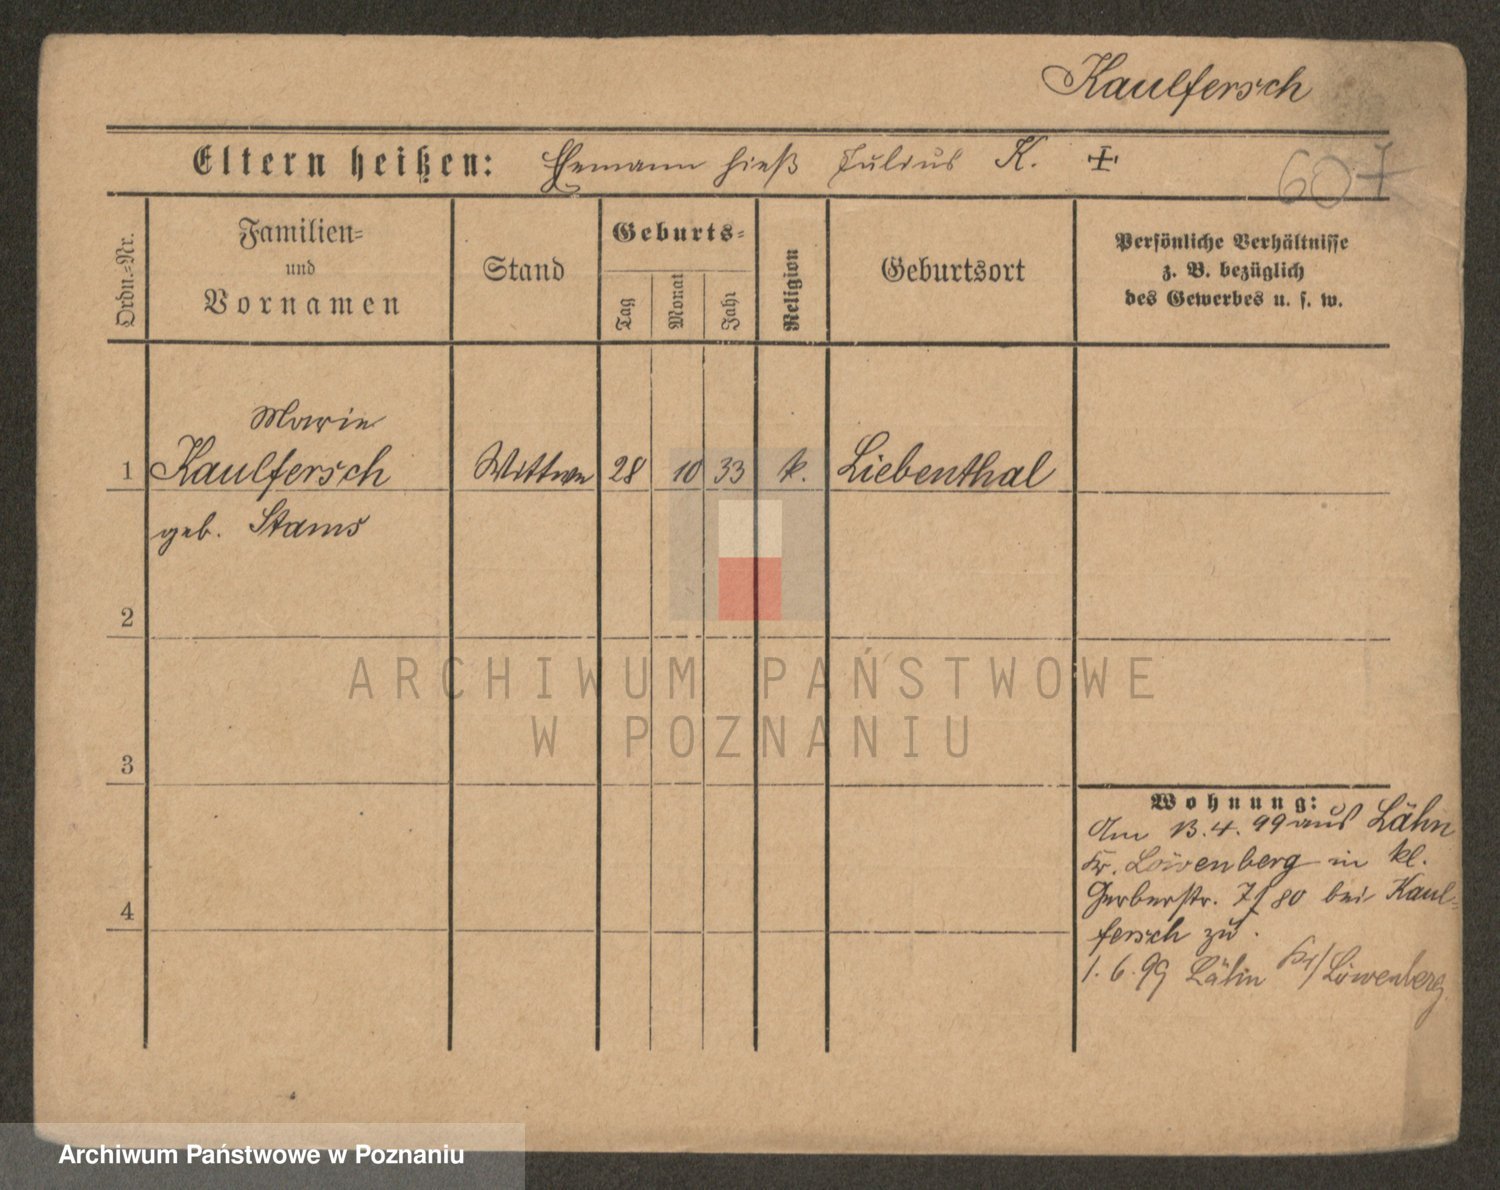 Kaulfersch
Eltern heißen: Ehemann hieß Julius K. ‡
607
Ordn.=Nr.
Familien=
und
Vornamen
Stand
Geburts=
Tag
Monat
Jahr
Religion
Geburtsort
Persönliche Verhältnisse
z. B. bezüglich
des Gewerbes u. s. w.
Marie
1 Kaulfersch Wittwe 28 10 33 k. Liebenthal
geb. Stams
2
3
4
Wohnung:
Am 13.4.99 aus Lähn
Kr. Löwenberg in kl.
Gerberstr. 7/80 bei Kaul=
fersch zu.
1.6.99 Lähn Kr/Löwenberg
ARCHIWUM PAŃSTWOWE
W POZNANIU
Archiwum Państwowe w Poznaniu